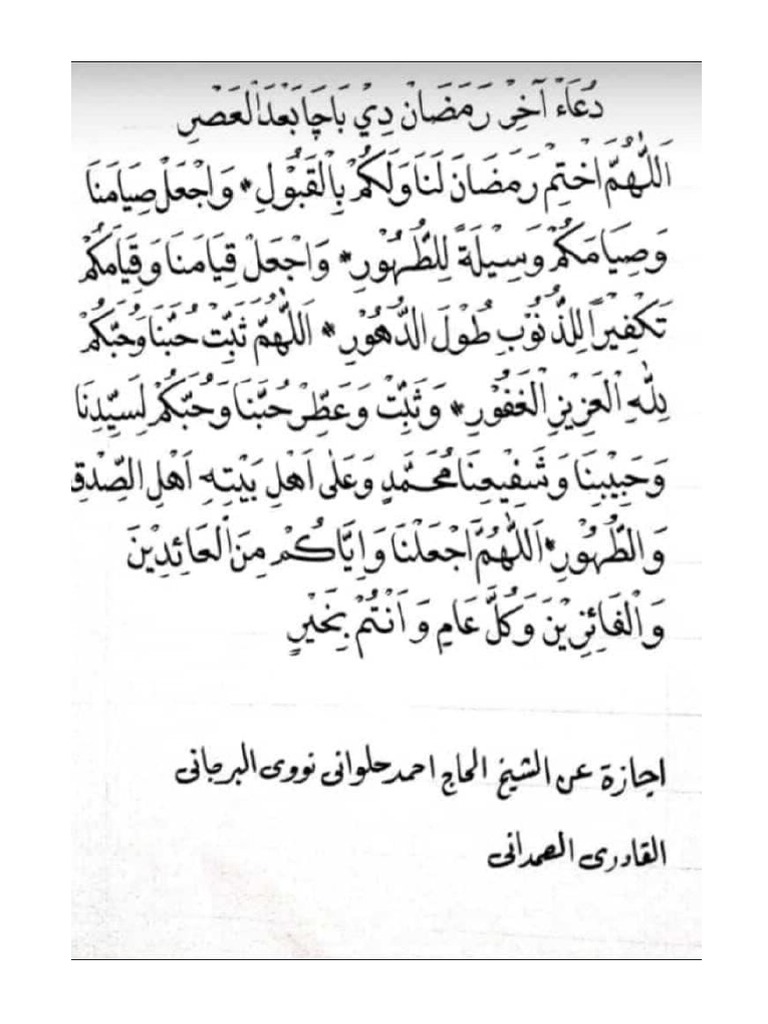 دُعَاءْ آخِرْ رَمَضَانْ دِيْ بَاچَا بَعْدَ الْعَصْرِ
اَللّٰهُمَّ اخْتِمْ رَمَضَانَ لَنَا وَلَكُمْ بِالْقَبُوْلِ * وَاجْعَلْ صِيَامَنَا
وَصِيَامَكُمْ وَسِيْلَةً لِلطُّهُوْرِ * وَاجْعَلْ قِيَامَنَا وَقِيَامَكُمْ
تَكْفِيْرًا لِلذُّنُوْبِ طُوْلَ الدُّهُوْرِ * اَللّٰهُمَّ ثَبِّتْ حُبَّنَا وَحُبَّكُمْ
لِلّٰهِ الْعَزِيْزِ الْغَفُوْرِ * وَثَبِّتْ وَعَطِّرْ حُبَّنَا وَحُبَّكُمْ لِسَيِّدِنَا
وَحَبِيْبِنَا وَشَفِيْعِنَا مُحَمَّدٍ وَعَلٰى اَهْلِ بَيْتِهِ اَهْلِ الصِّدْقِ
وَالطُّهُوْرِ * اَللّٰهُمَّ اجْعَلْنَا وَاِيَّاكُمْ مِنَ الْعَائِدِيْنَ
وَالْفَائِزِيْنَ وَكُلَّ عَامٍ وَاَنْتُمْ بِخَيْرٍ
اجازة عن الشيخ الحاج احمد حلوانى نووى البرجانى
القادرى الصمدانى